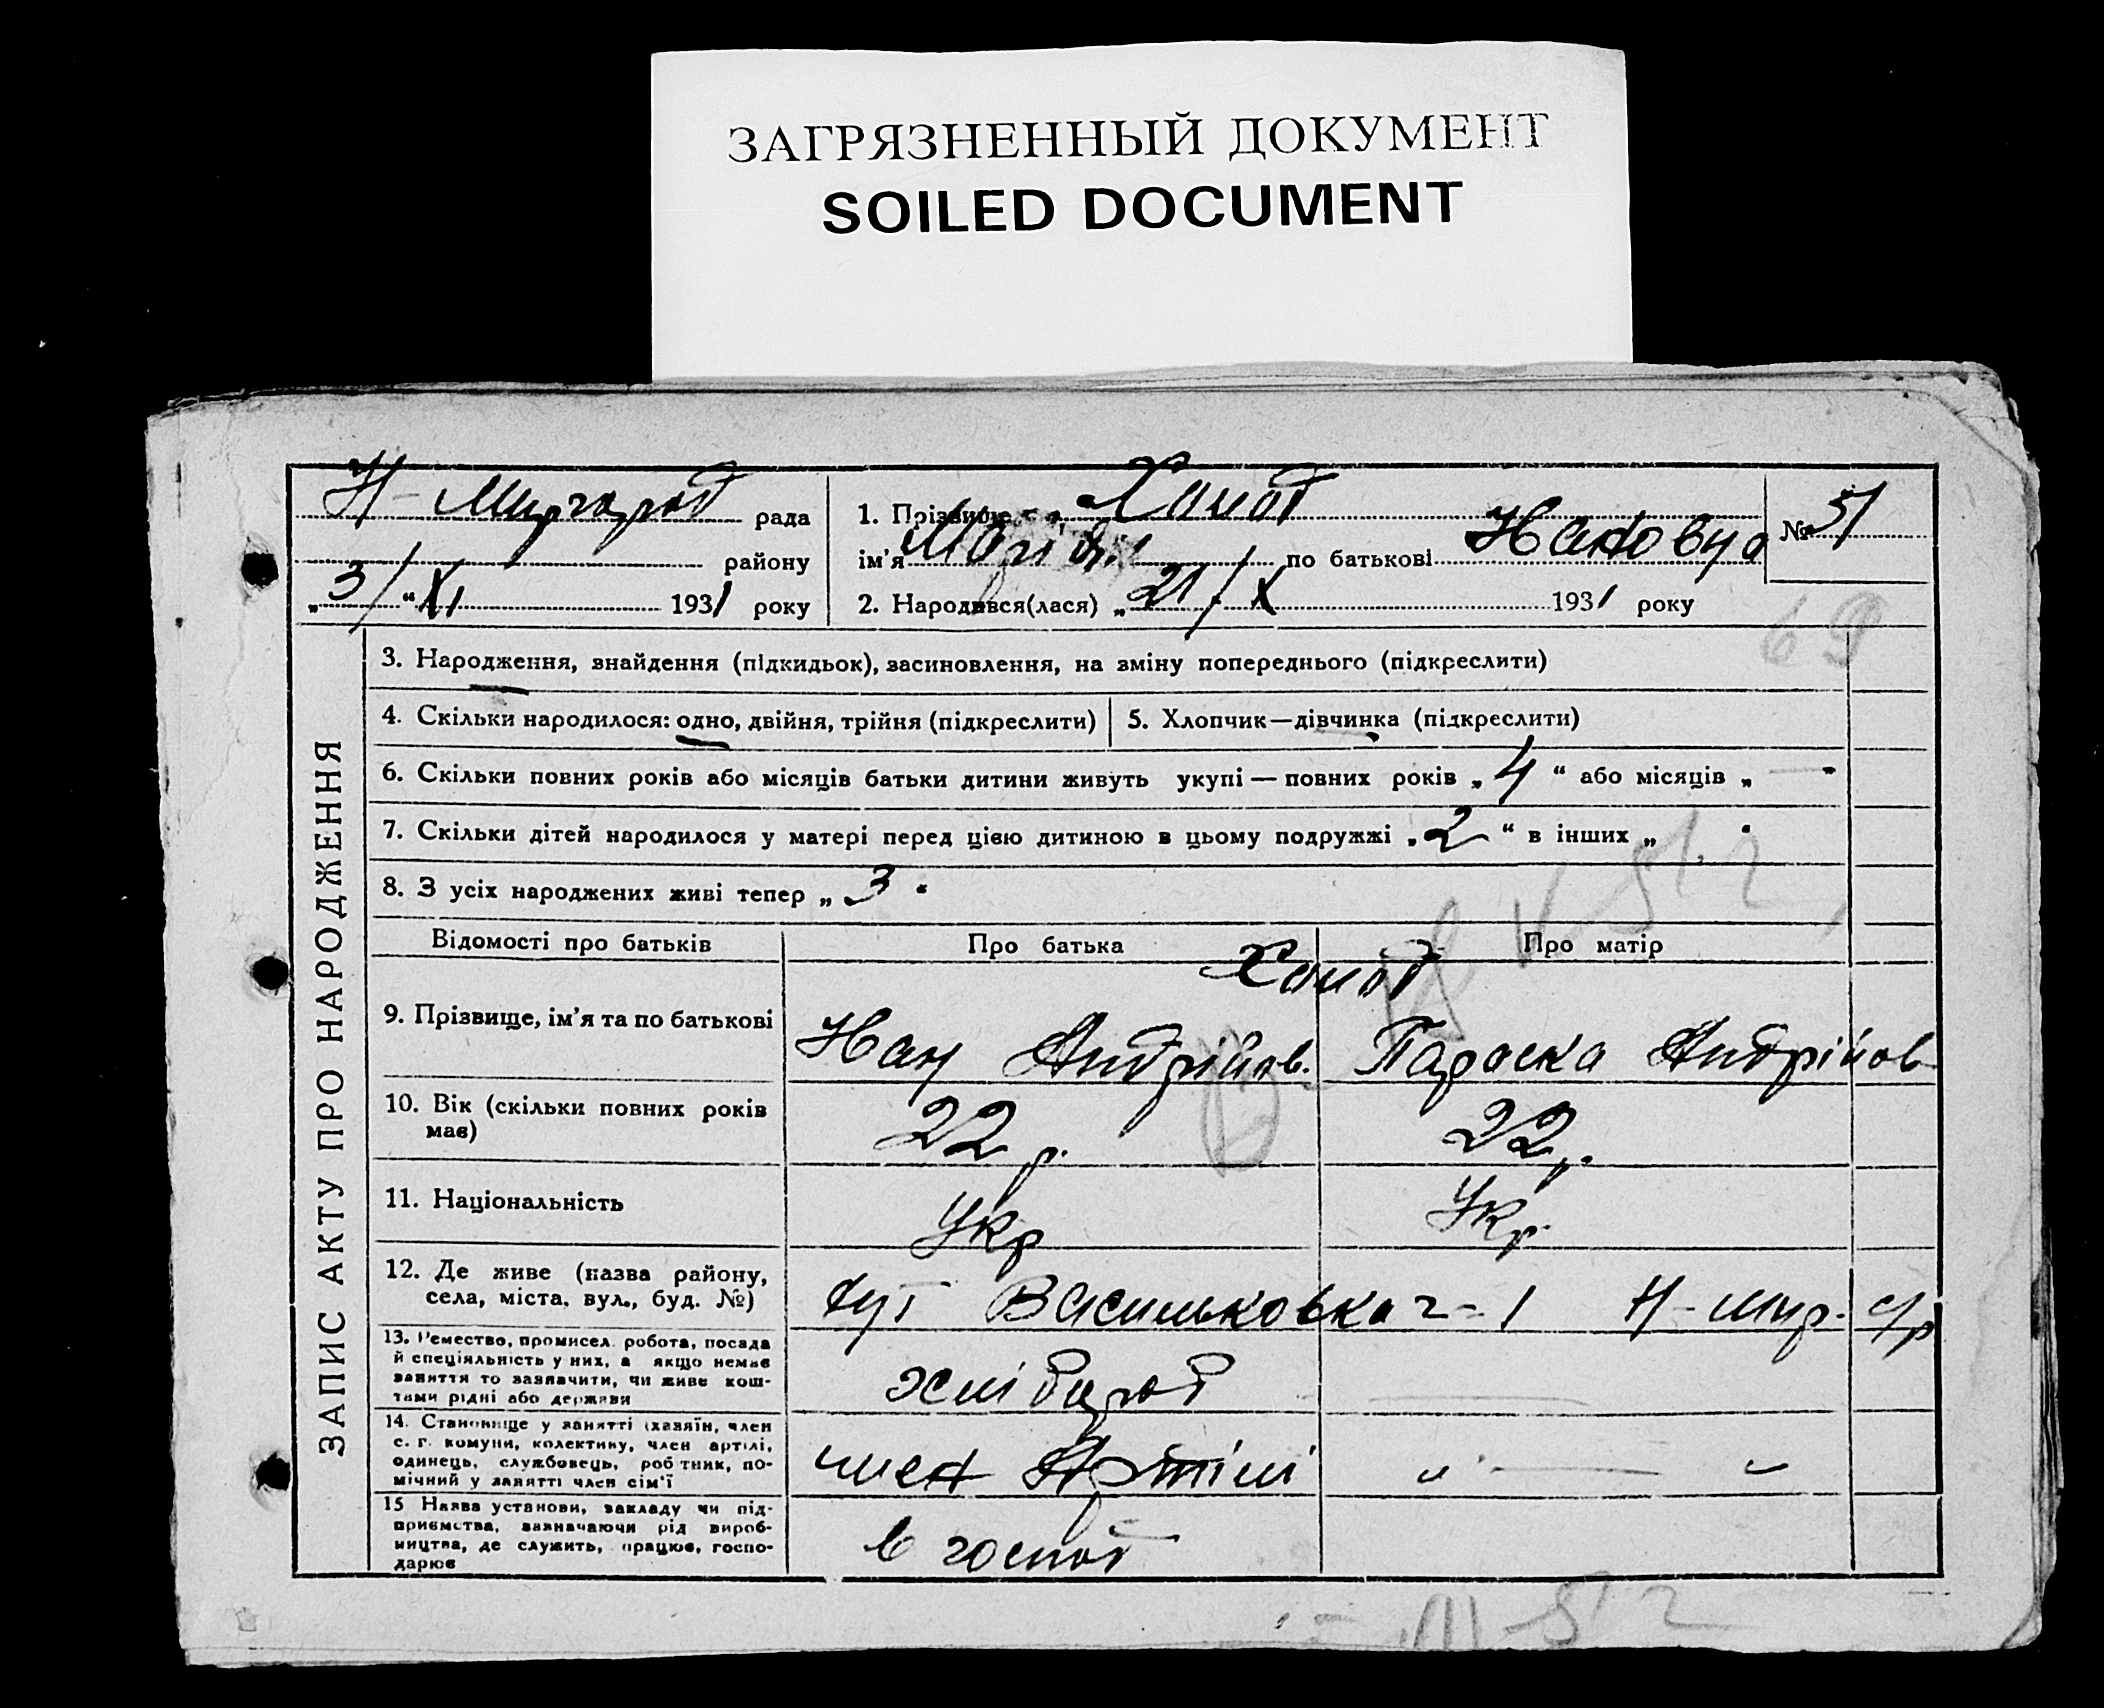 ЗАГРЯЗНЕННЫЙ ДОКУМЕНТ
SOILED DOCUMENT
Н-Миргород рада
району
„3/“ XI 1931 року
1. Прізвище Хомот
ім'я Марія по батькові Ивановна
2. Народився(лася) „21/ X 1931 року
№ 51
69
ЗАПИС АКТУ ПРО НАРОДЖЕННЯ
3. Народження, знайдення (підкидьок), засиновлення, на зміну попереднього (підкреслити)
4. Скільки народилося: одно, двійня, трійня (підкреслити)
5. Хлопчик—дівчинка (підкреслити)
6. Скільки повних років або місяців батьки дитини живуть укупі — повних років „4“ або місяців „—"
7. Скільки дітей народилося у матері перед цією дитиною в цьому подружжі „2“ в інших „
8. З усіх народжених живі тепер „3"
Відомості про батьків Про батька Про матір
9. Прізвище, ім'я та по батькові
Хомот
Иван Андрійов. Параска Андрійов
10. Вік (скільки повних років має) 22 р. 22 р.
11. Національність Укр Укр.
12. Де живе (назва району, села, міста, вул., буд. №)
Васильковка 2-1 Н-мир. с/р
13. Ремество, промисел, робота, посада й спеціяльність у них, а якщо немає заняття то зазначити, чи живе коштами рідні або держави
хлібороб
14. Становище у занятті (хазяїн, член с.-г. комуни, колективу, член артілі, одинець, службовець, робітник, помічний у занятті член сім'ї
член Артілі „ — "
15 Назва установи, закладу чи підприємства, зазначаючи рід виробництва, де служить, працює, господарює
в господ